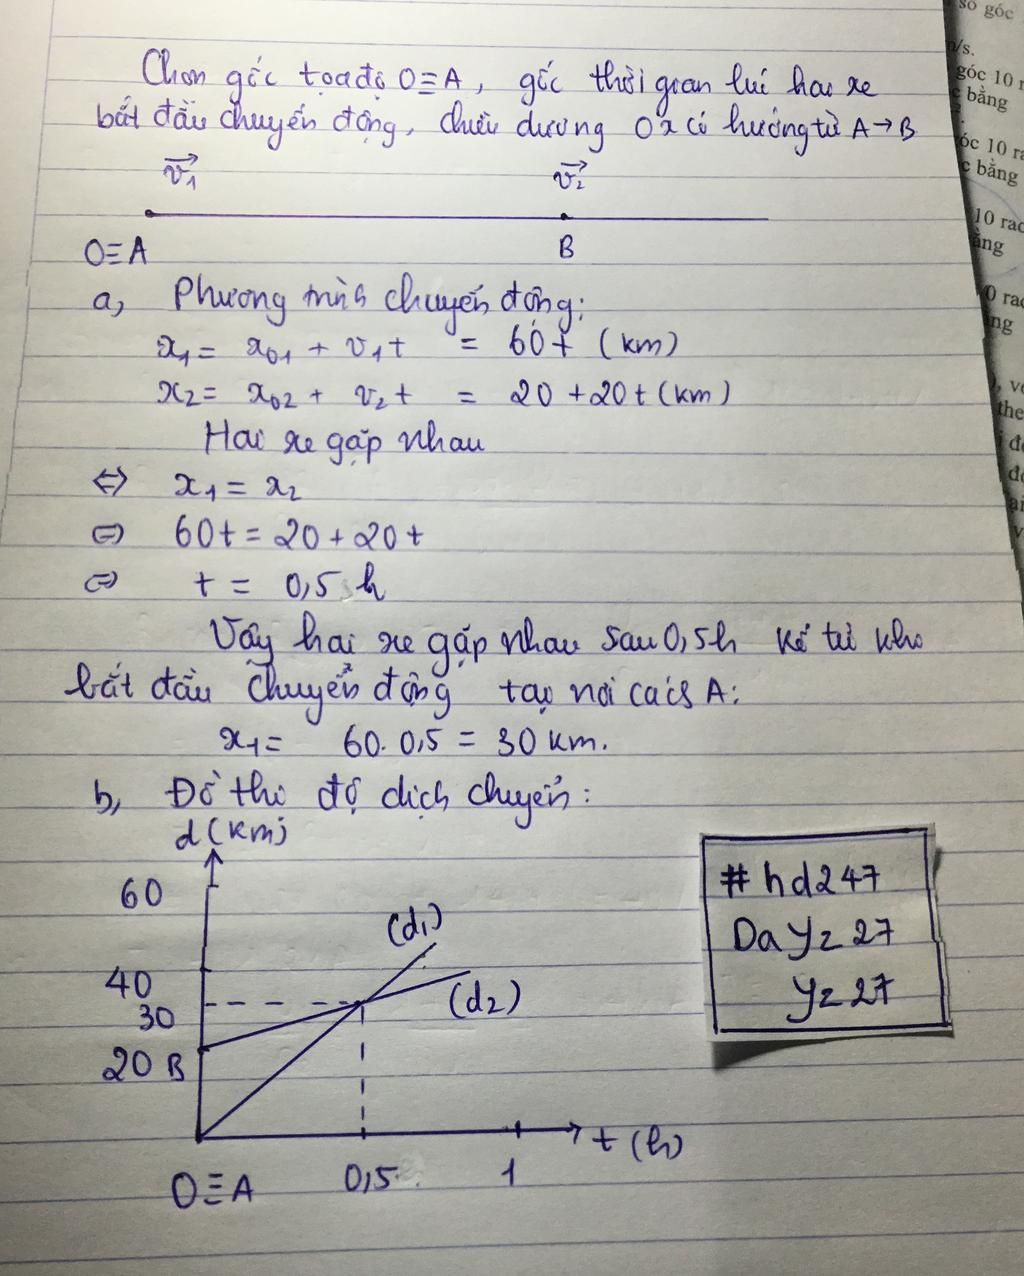 Chọn gốc tọa độ O≡A, gốc thời gian lúc hai xe
bắt đầu chuyển động, chiều dương Ox có hướng từ A→B
v₁ v₂
O≡A B
a, Phương trình chuyển động:
x₁ = x₀₁ + v₁t = 60t (km)
x₂ = x₀₂ + v₂t = 20 + 20t (km)
Hai xe gặp nhau
⇔ x₁ = x₂
⇔ 60t = 20 + 20t
⇔ t = 0,5 h
Vậy hai xe gặp nhau sau 0,5h kể từ khi
bắt đầu chuyển động tại nơi cách A:
x₁ = 60. 0,5 = 30 km.
b, Đồ thị độ dịch chuyển:
d (km)
60
(d₁)
40
30
(d₂)
20 B
t (h)
O≡A 0,5 1
#hd247
Da yz 27
yz 27
số góc
/s.
góc 10 r
bằng
óc 10 ra
c bằng
10 rad
ằng
0 rad
ng